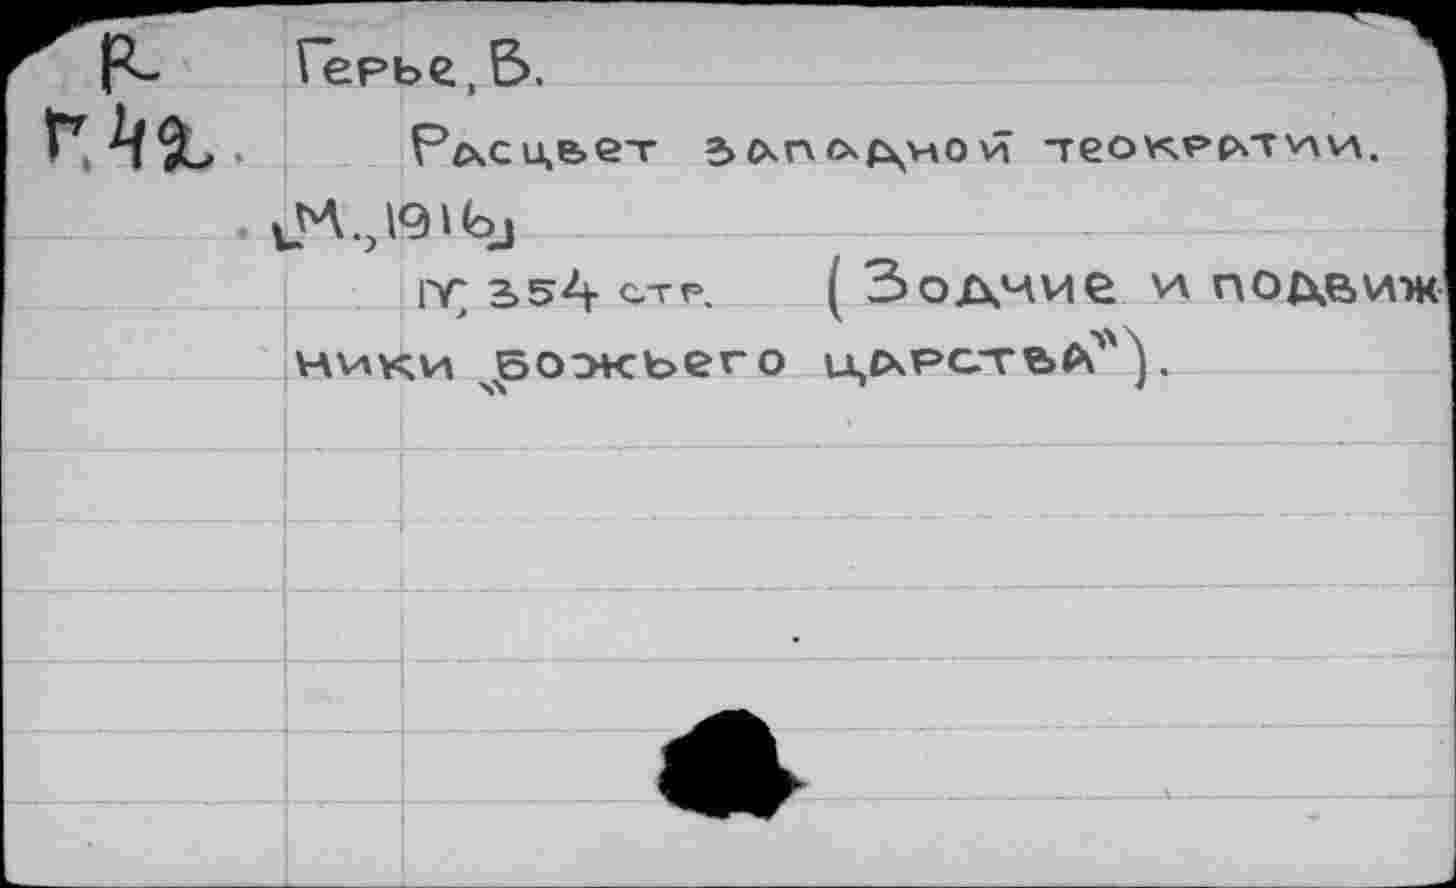 R-
Г.42.
Герье, В.
Расцвет западной теократии.
[М., 1916]
IV; 354 стр. (Зодчие и подвиж
ники „Божьего царства").